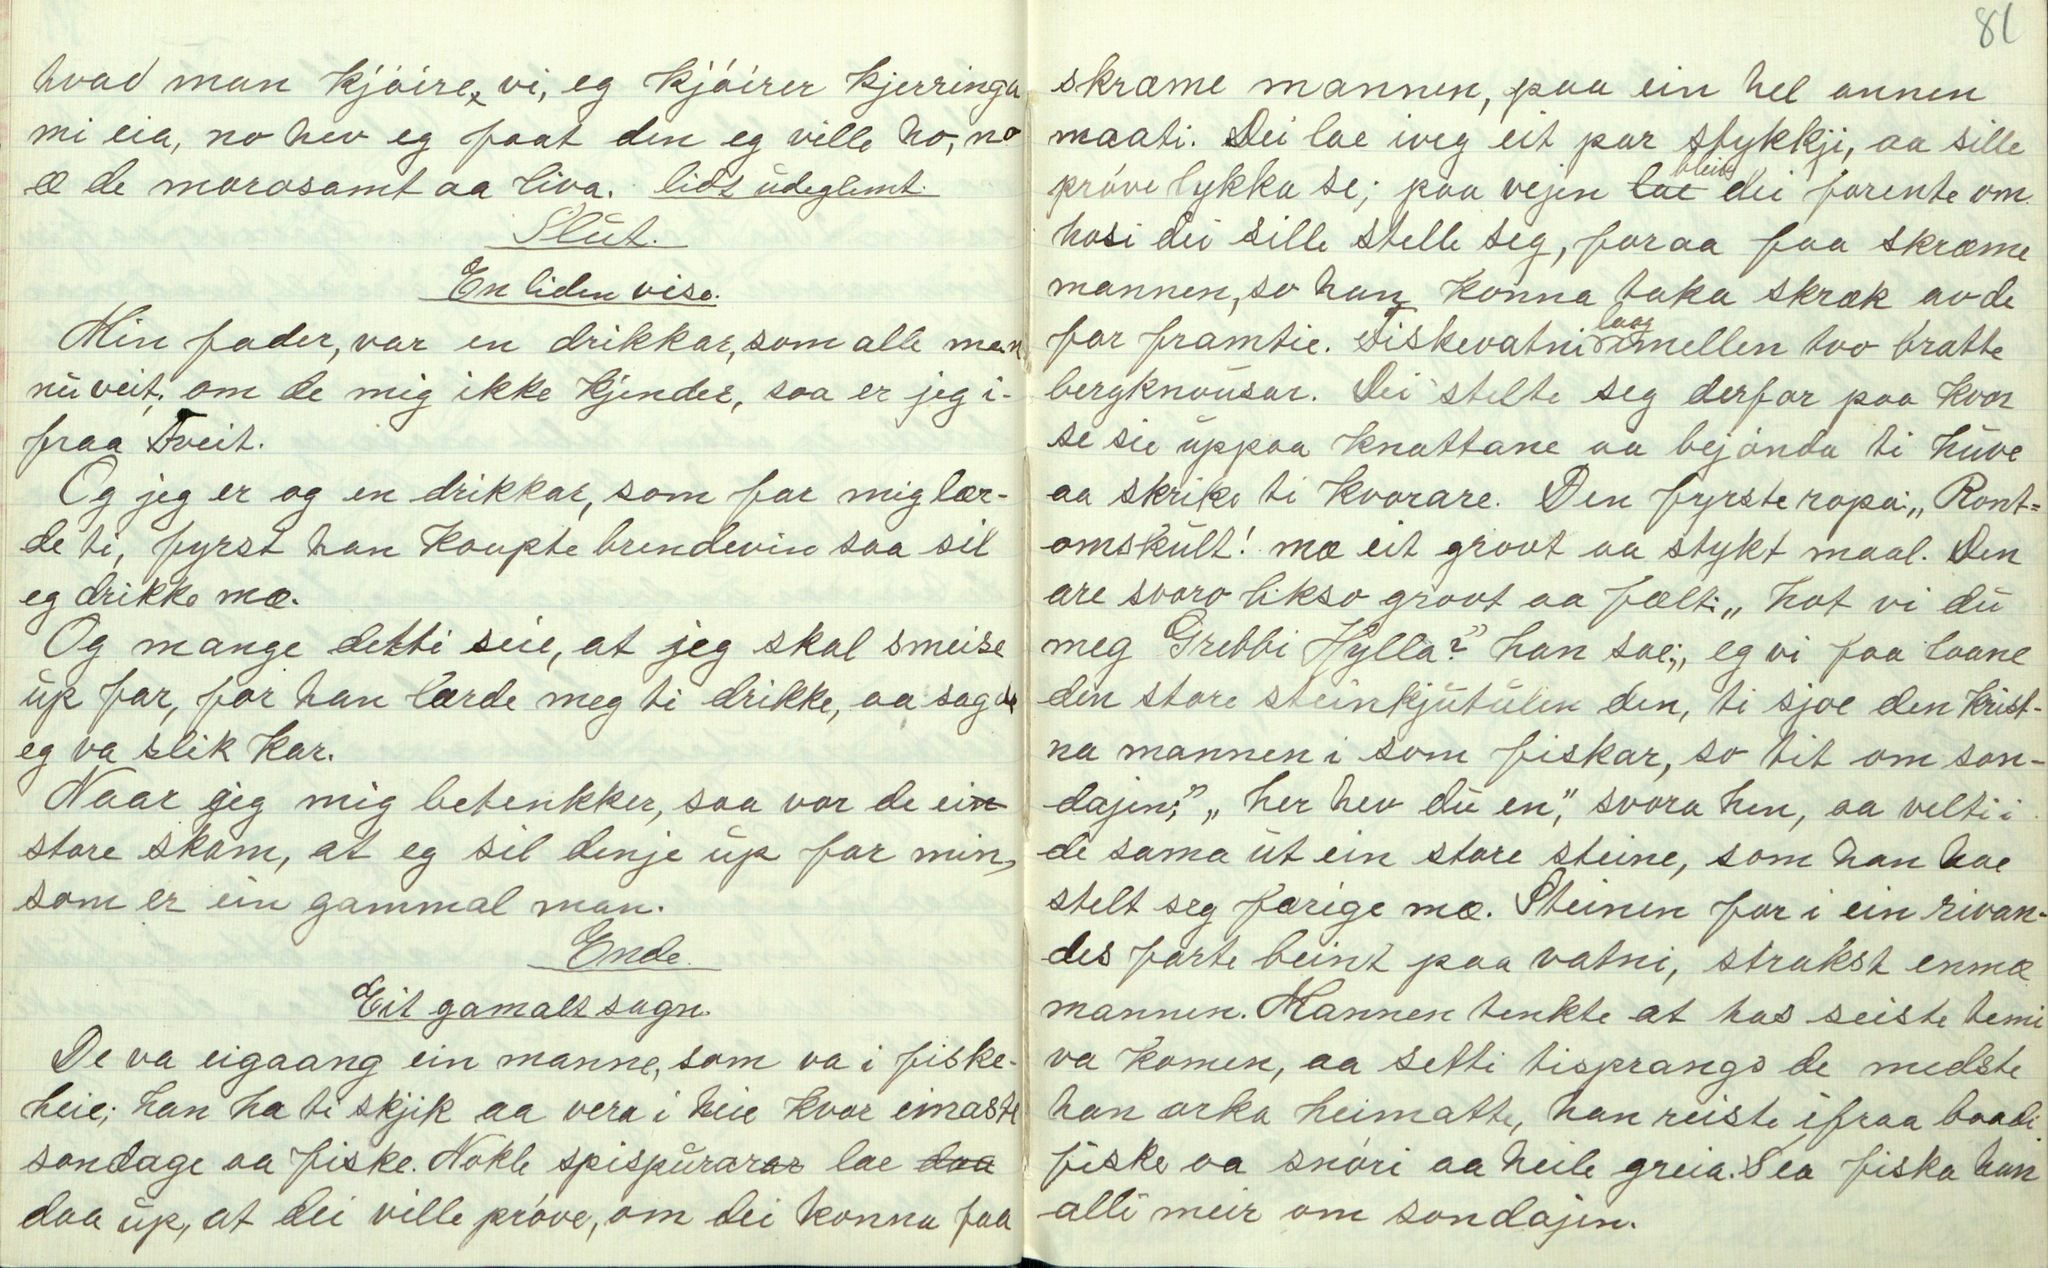 hvad man kjóirer vi, eg kjóirer kjerringa
mi eia, no hev eg faat den eg ville ho, no
æ de morosamt aa liva. lidt udeglemt.
Slut.
En liden vise.
Min fader, var en drikkar, som alle man
nu veit; om de mig ikke kjender, saa er jeg i-
fraa Tveit.
Og jeg er og en drikkar, som far mig lær-
de ti, fyrst han koupte brendevin saa sil
eg drikke mæ.
Og mange detti seie, at jeg skal smeise
up far, for han lærde meg ti drikke, aa sagde
eg va slik kar.
Naar jeg mig betenkker, saa var de ein
store skam, at eg sil denje up far min,
som er ein gammal man.
Ende.
Eit gamalt sagn.
De va eigaang ein manne, som va i fiske-
heie; han ha ti skjik aa vera i heie kvar einaste
sondage aa fiske. Nokle spispurarar lae daa
daa up, at dei ville próve, om dei konna faa
81
skræme mannen, paa ein hel annen
maati. Dei lae iveg eit par stykkji, aa sille
próve lykka se; paa vejen lae bleiv dei forente om
hosi dei sille stelle seg, for aa faa skræme
mannen, so han konna taka skræk av de
for framtie. Fiskevatni laag imellen tvo bratte
bergknousar. Dei stelte seg derfor paa kvar
se sie uppaa knattane aa bejónda ti huve
aa skrike ti kvorare. Den fyrste ropa: „Ront-
omskult! mæ eit grovt aa stykt maal. Den
are svara likso grovt aa fælt: „hot vi du
meg Grebbi Hylla?" han sae; „eg vi faa laane
den store steinkjutulen den, ti sjoe den krist-
na mannen i som fiskar, so tit om son-
dajen;" „her hev du en," svora hen, aa velti i
de sama ut ein store steine, som han hae
stelt seg færige mæ. Steinen for i ein rivan-
des farte beint paa vatni, strakst enmæ
mannen. Mannen tenkte at has seiste temi
va komen, aa setti tisprangs de medste
han orka heimatte, han reiste ifraa baadi
fiske aa snóri aa heile greia. Sea fiska han
alli meir om sondajen.